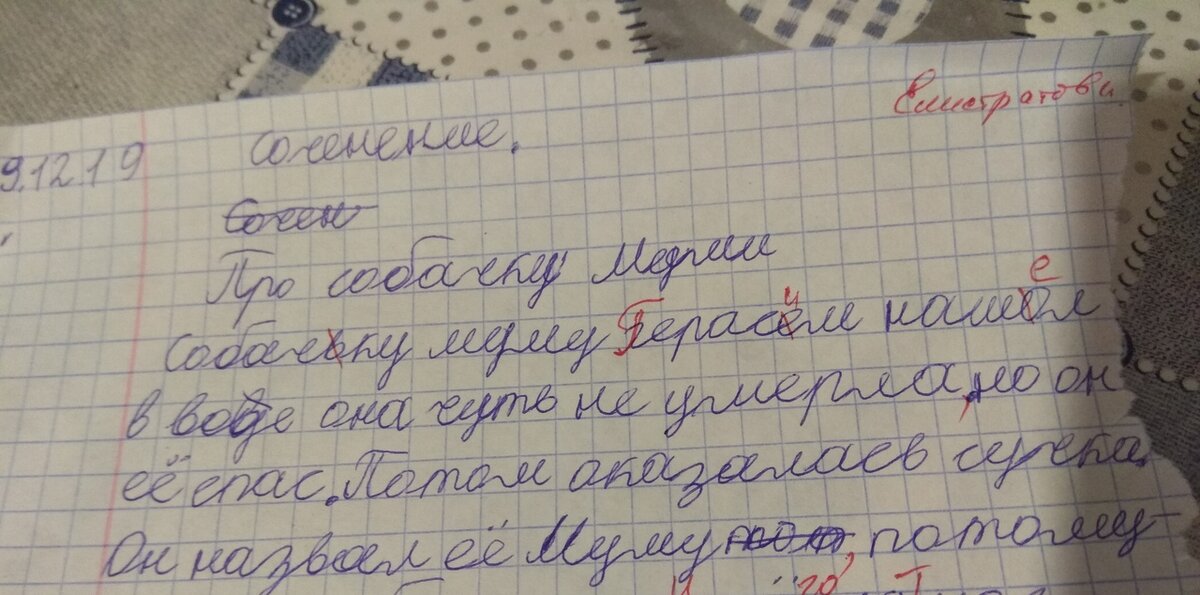 Елистратова
9.12.19 Соченение.
Сочен
Про собачку Мумии
Собачьку муму Герасем нашол
и е
в воде она чуть не умерла, но он
её спас. Потом оказалась сучека.
Он назвал её Муму, потому-